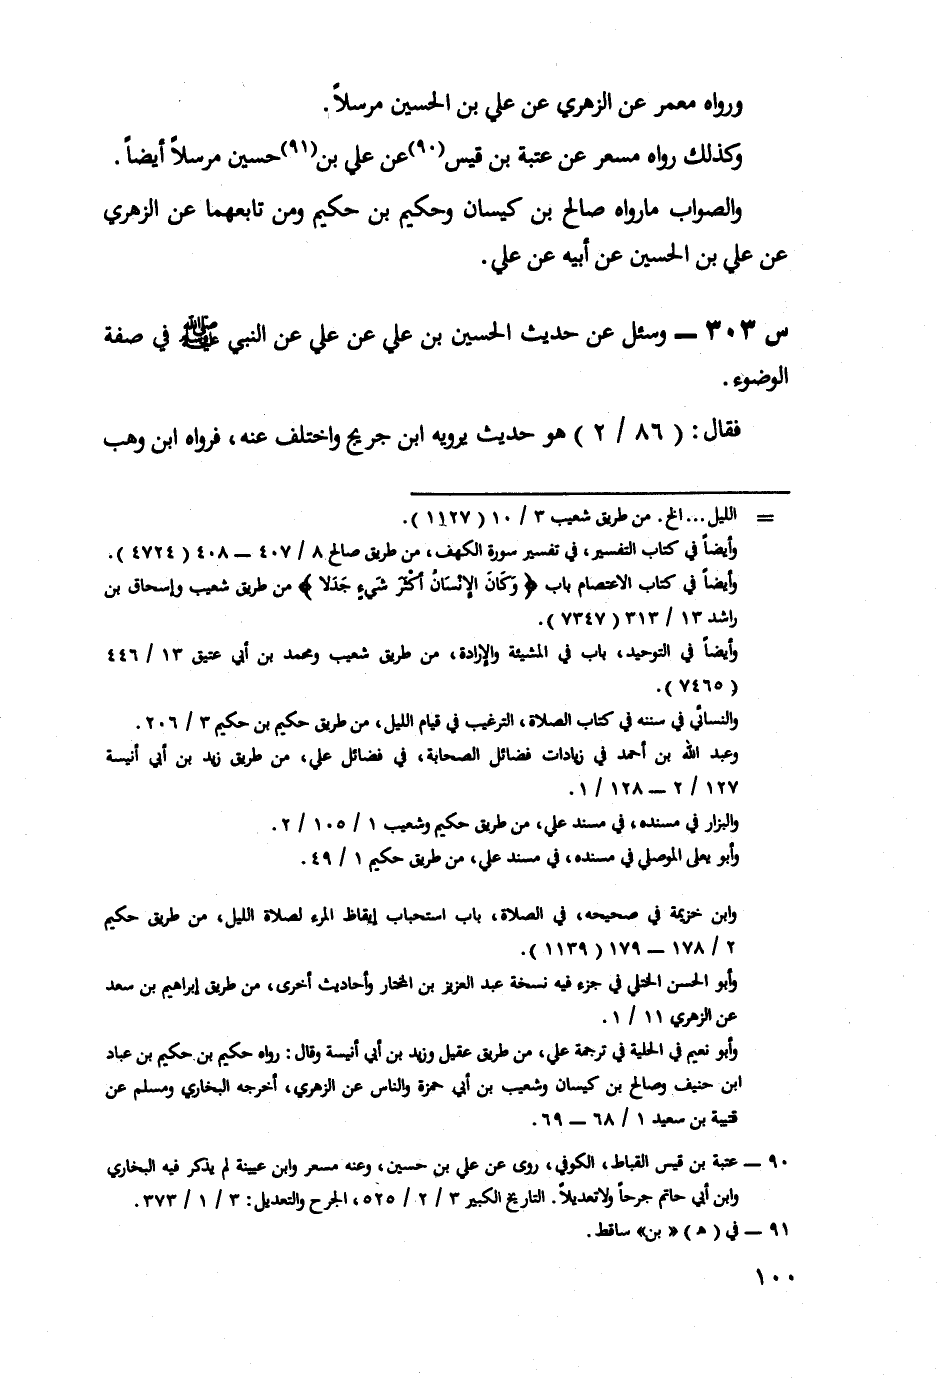 ورواه معمر عن الزهري عن علي بن الحسين مرسلاً.
وكذلك رواه مسعر عن عتبة بن قيس(٩٠)عن علي بن(٩١)حسين مرسلاً أيضاً.
والصواب مارواه صالح بن كيسان وحكيم بن حكيم ومن تابعهما عن الزهري
عن علي بن الحسين عن أبيه عن علي.
س ٣٠٣ – وسئل عن حديث الحسين بن علي عن علي عن النبي ﷺ في صفة
الوضوء.
فقال: ( ٨٦ / ٢ ) هو حديث يرويه ابن جريج واختلف عنه، فرواه ابن وهب
= الليل... الخ. من طريق شعيب ٣ / ١٠ ( ١١٢٧ ).
وأيضاً في كتاب التفسير، في تفسير سورة الكهف، من طريق صالح ٨ / ٤٠٧ – ٤٠٨ ( ٤٧٢٤ ).
وأيضاً في كتاب الاعتصام باب ﴿ وَكَانَ الإِنْسَانُ أَكْثَرَ شَيءٍ جَدَلا ﴾ من طريق شعيب وإسحاق بن
راشد ١٣ / ٣١٣ ( ٧٣٤٧ ).
وأيضاً في التوحيد، باب في المشيئة والإرادة، من طريق شعيب ومحمد بن أبي عتيق ١٣ / ٤٤٦
( ٧٤٦٥ ).
والنسائي في سننه في كتاب الصلاة، الترغيب في قيام الليل، من طريق حكيم بن حكيم ٣ / ٢٠٦.
وعبد الله بن أحمد في زيادات فضائل الصحابة، في فضائل علي، من طريق زيد بن أبي أنيسة
١٢٧ / ٢ – ١٢٨ / ١.
والبزار في مسنده، في مسند علي، من طريق حكيم وشعيب ١ / ١٠٥ / ٢.
وأبو يعلى الموصلي في مسنده، في مسند علي، من طريق حكيم ١ / ٤٩.
وابن خزيمة في صحيحه، في الصلاة، باب استحباب إيقاظ المرء لصلاة الليل، من طريق حكيم
٢ / ١٧٨ – ١٧٩ ( ١١٣٩ ).
وأبو الحسن الختلي في جزء فيه نسخة عبد العزيز بن المختار وأحاديث أخرى، من طريق إبراهيم بن سعد
عن الزهري ١١ / ١.
وأبو نعيم في الحلية في ترجمة علي، من طريق عقيل وزيد بن أبي أنيسة وقال: رواه حكيم بن حكيم بن عباد
ابن حنيف وصالح بن كيسان وشعيب بن أبي حمزة والناس عن الزهري، أخرجه البخاري ومسلم عن
قتيبة بن سعيد ١ / ٦٨ – ٦٩.
٩٠ – عتبة بن قيس القباط، الكوفي، روى عن علي بن حسين، وعنه مسعر وابن عيينة لم يذكر فيه البخاري
وابن أبي حاتم جرحاً ولاتعديلاً. التاريخ الكبير ٣ / ٢ / ٥٢٥، الجرح والتعديل: ٣ / ١ / ٣٧٣.
٩١ – في ( هـ ) « بن» ساقط.
١٠٠